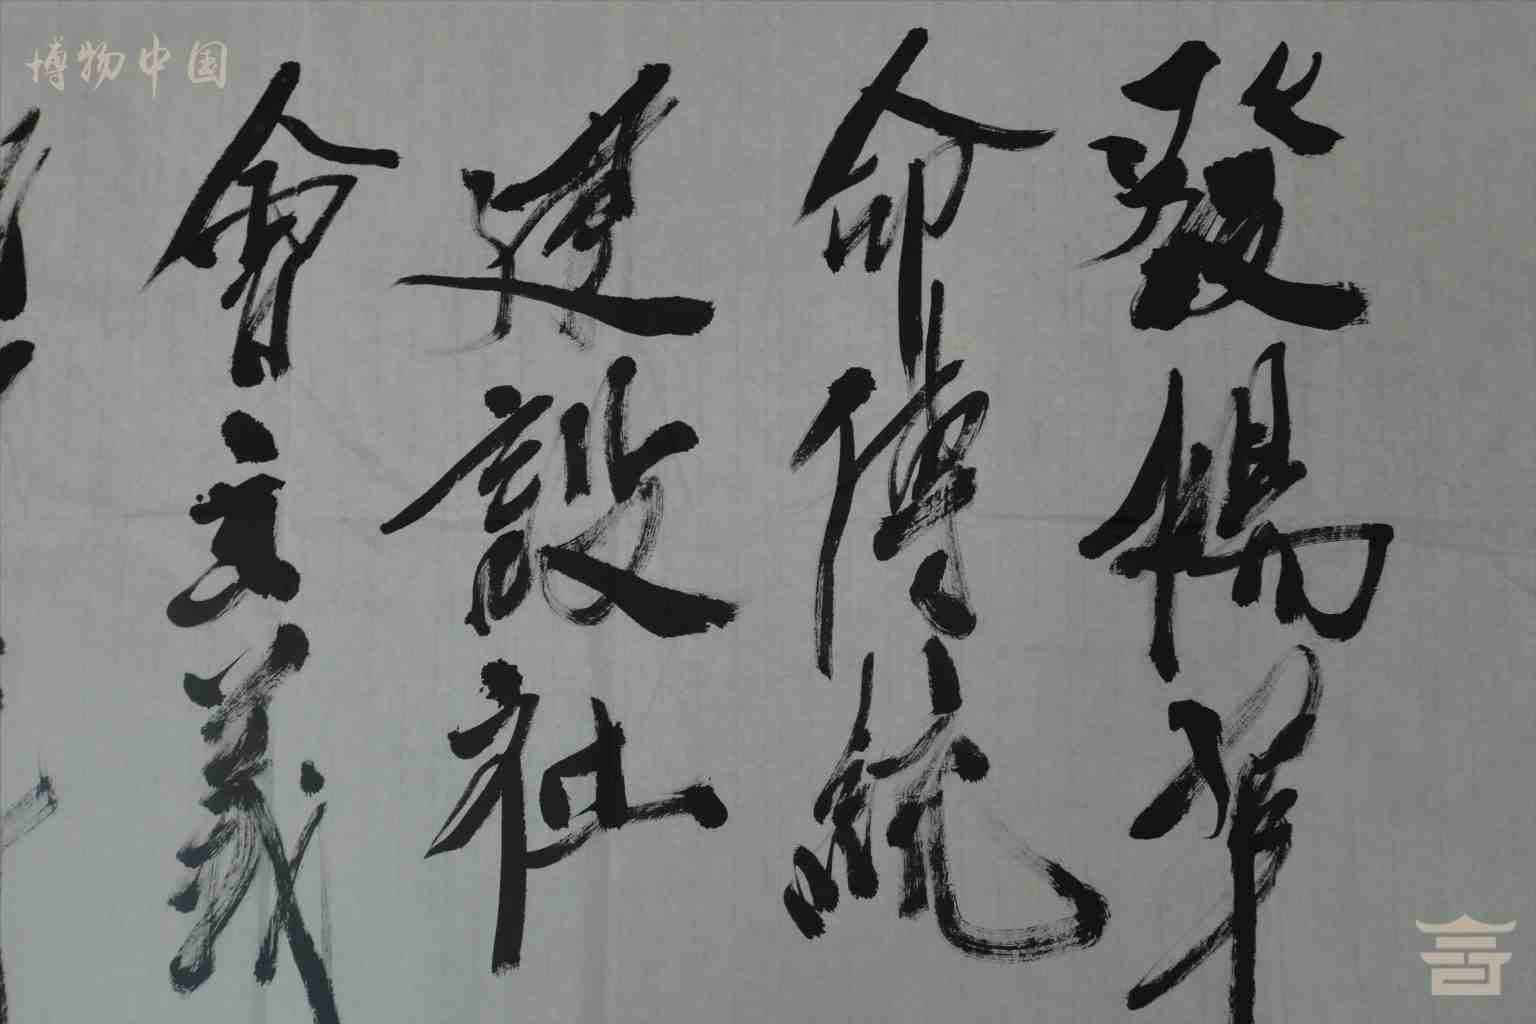 博物中国
發揚革
命傳統
建設社
會主義